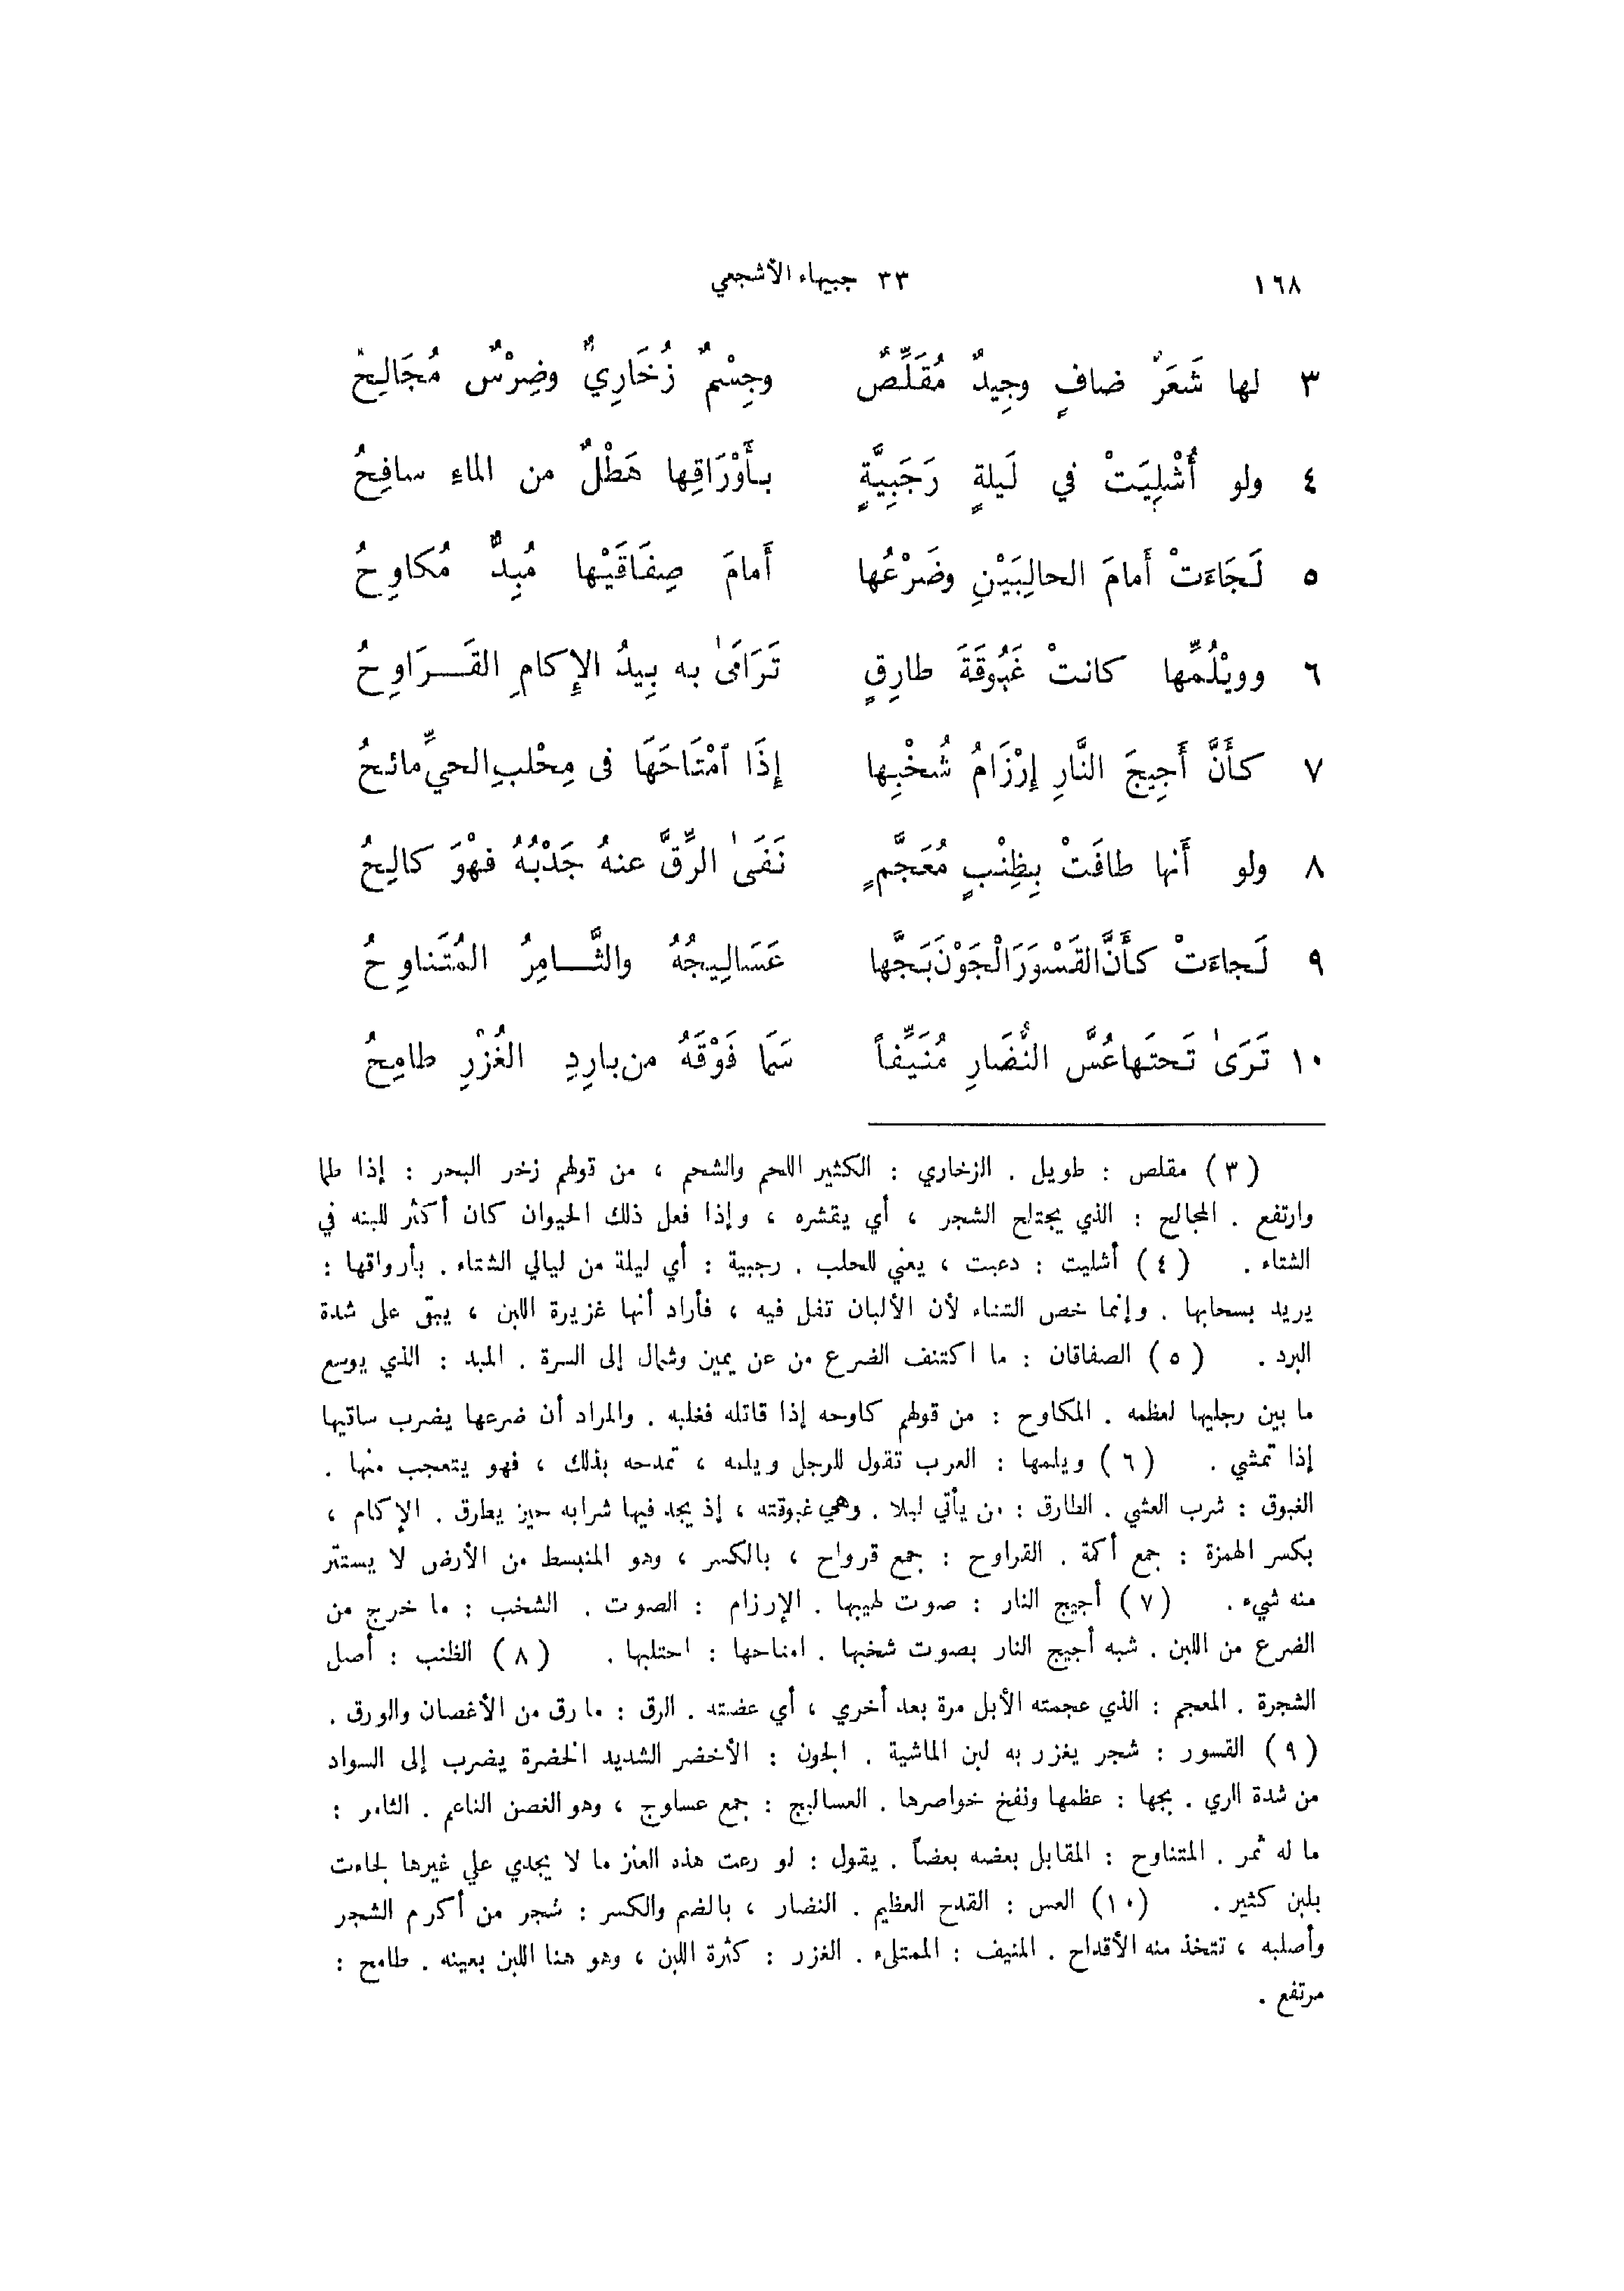 ١٦٨
٣٣ جبيهاء الأشجعي
٣ لها شَعَرٌ ضافٍ وجِيدٌ مُقَلِّصٌ وجِسْمٌ زُخَارِيٌّ وضِرْسٌ مُجَالِحُ
٤ ولو أُشْلِيَتْ في لَيلةٍ رَجَبِيَّةٍ بأَوْرَاقِها هَطْلٌ من الماءِ سافِحُ
٥ لَجَاءَتْ أَمامَ الحالِبَيْنِ وضَرْعُها أَمامَ صِفَاقَيْها مُبِدٌّ مُكاوِحُ
٦ وويْلُمِّها كانتْ غَبُوقَةَ طارِقٍ تَرَامَىٰ به بِيدُ الإِكامِ القَـــرَاوِحُ
٧ كأَنَّ أَجِيجَ النَّارِ إرْزَامُ شُخْبِها إِذَا ٱمْتَاحَهَا فى مِحْلبِ الحيِّ مائحُ
٨ ولو أَنها طافَتْ بِظِنْبٍ مُعَجَّمٍ نَفَىٰ الرِّقَّ عنهُ جَدْبُهُ فهْوَ كالِحُ
٩ لَجاءَتْ كأَنَّ القَسْوَرَ الْجَوْنَ بَجَّها عَسَالِيجُهُ والثَّــامِرُ المُتَناوِحُ
١٠ تَرَىٰ تَحتَها عُسَّ النُّضَارِ مُنَيِّفاً سَمَا فَوْقَهُ من بارِدِ الغُزْرِ طامِحُ
( ٣ ) مقلص : طويل . الزخاري : الكثير اللحم والشحم ، من قولهم زخر البحر : إذا طما
وارتفع . المجالح : الذي يجتلح الشجر ، أي يقشره ، وإذا فعل ذلك الحيوان كان أكثر للبنه في
الشتاء . ( ٤ ) أشليت : دعيت ، يعني للحلب . رجبية : أي ليلة من ليالي الشتاء . بأرواقها :
يريد بسحابها . وإنما خص الشتاء لأن الألبان تقل فيه ، فأراد أنها غزيرة اللبن ، يبقى على شدة
البرد . ( ٥ ) الصفاقان : ما اكتنف الضرع من عن يمين وشمال إلى السرة . المبد : الذي يوسع
ما بين رجليها لعظمه . المكاوح : من قولهم كاوحه إذا قاتله فغلبه . والمراد أن ضرعها يضرب ساقيها
إذا تمشي . ( ٦ ) ويلمها : العرب تقول للرجل ويلمه ، تمدحه بذلك ، فهو يتعجب منها .
الغبوق : شرب العشي . الطارق : من يأتي ليلا . وهي غبوقته ، إذ يجد فيها شرابه حين يطرق . الإكام ،
بكسر الهمزة : جمع أكمة . القراوح : جمع قرواح ، بالكسر ، وهو المنبسط من الأرض لا يستتر
منه شيء . ( ٧ ) أجيج النار : صوت لهيبها . الإرزام : الصوت . الشخب : ما خرج من
الضرع من اللبن . شبه أجيج النار بصوت شخبها . امتاحها : احتلبها . ( ٨ ) الظنب : أصل
الشجرة . المعجم : الذي عجمته الأبل مرة بعد أخري ، أي عضته . الرق : ما رق من الأغصان والورق .
( ٩ ) القسور : شجر يغزر به لبن الماشية . الجون : الأخضر الشديد الخضرة يضرب إلى السواد
من شدة الري . بجها : عظمها ونفخ خواصرها . العساليج : جمع عسلوج ، وهو الغصن الناعم . الثامر :
ما له ثمر . المتناوح : المقابل بعضه بعضاً . يقول : لو رعت هذه العنز ما لا يجدي علي غيرها لجاءت
بلبن كثير . (١٠) العس : القدح العظيم . النضار ، بالضم والكسر : شجر من أكرم الشجر
وأصلبه ، تتخذ منه الأقداح . المنيف : الممتلىء . الغزر : كثرة اللبن ، وهو هنا اللبن بعينه . طامح :
مرتفع .